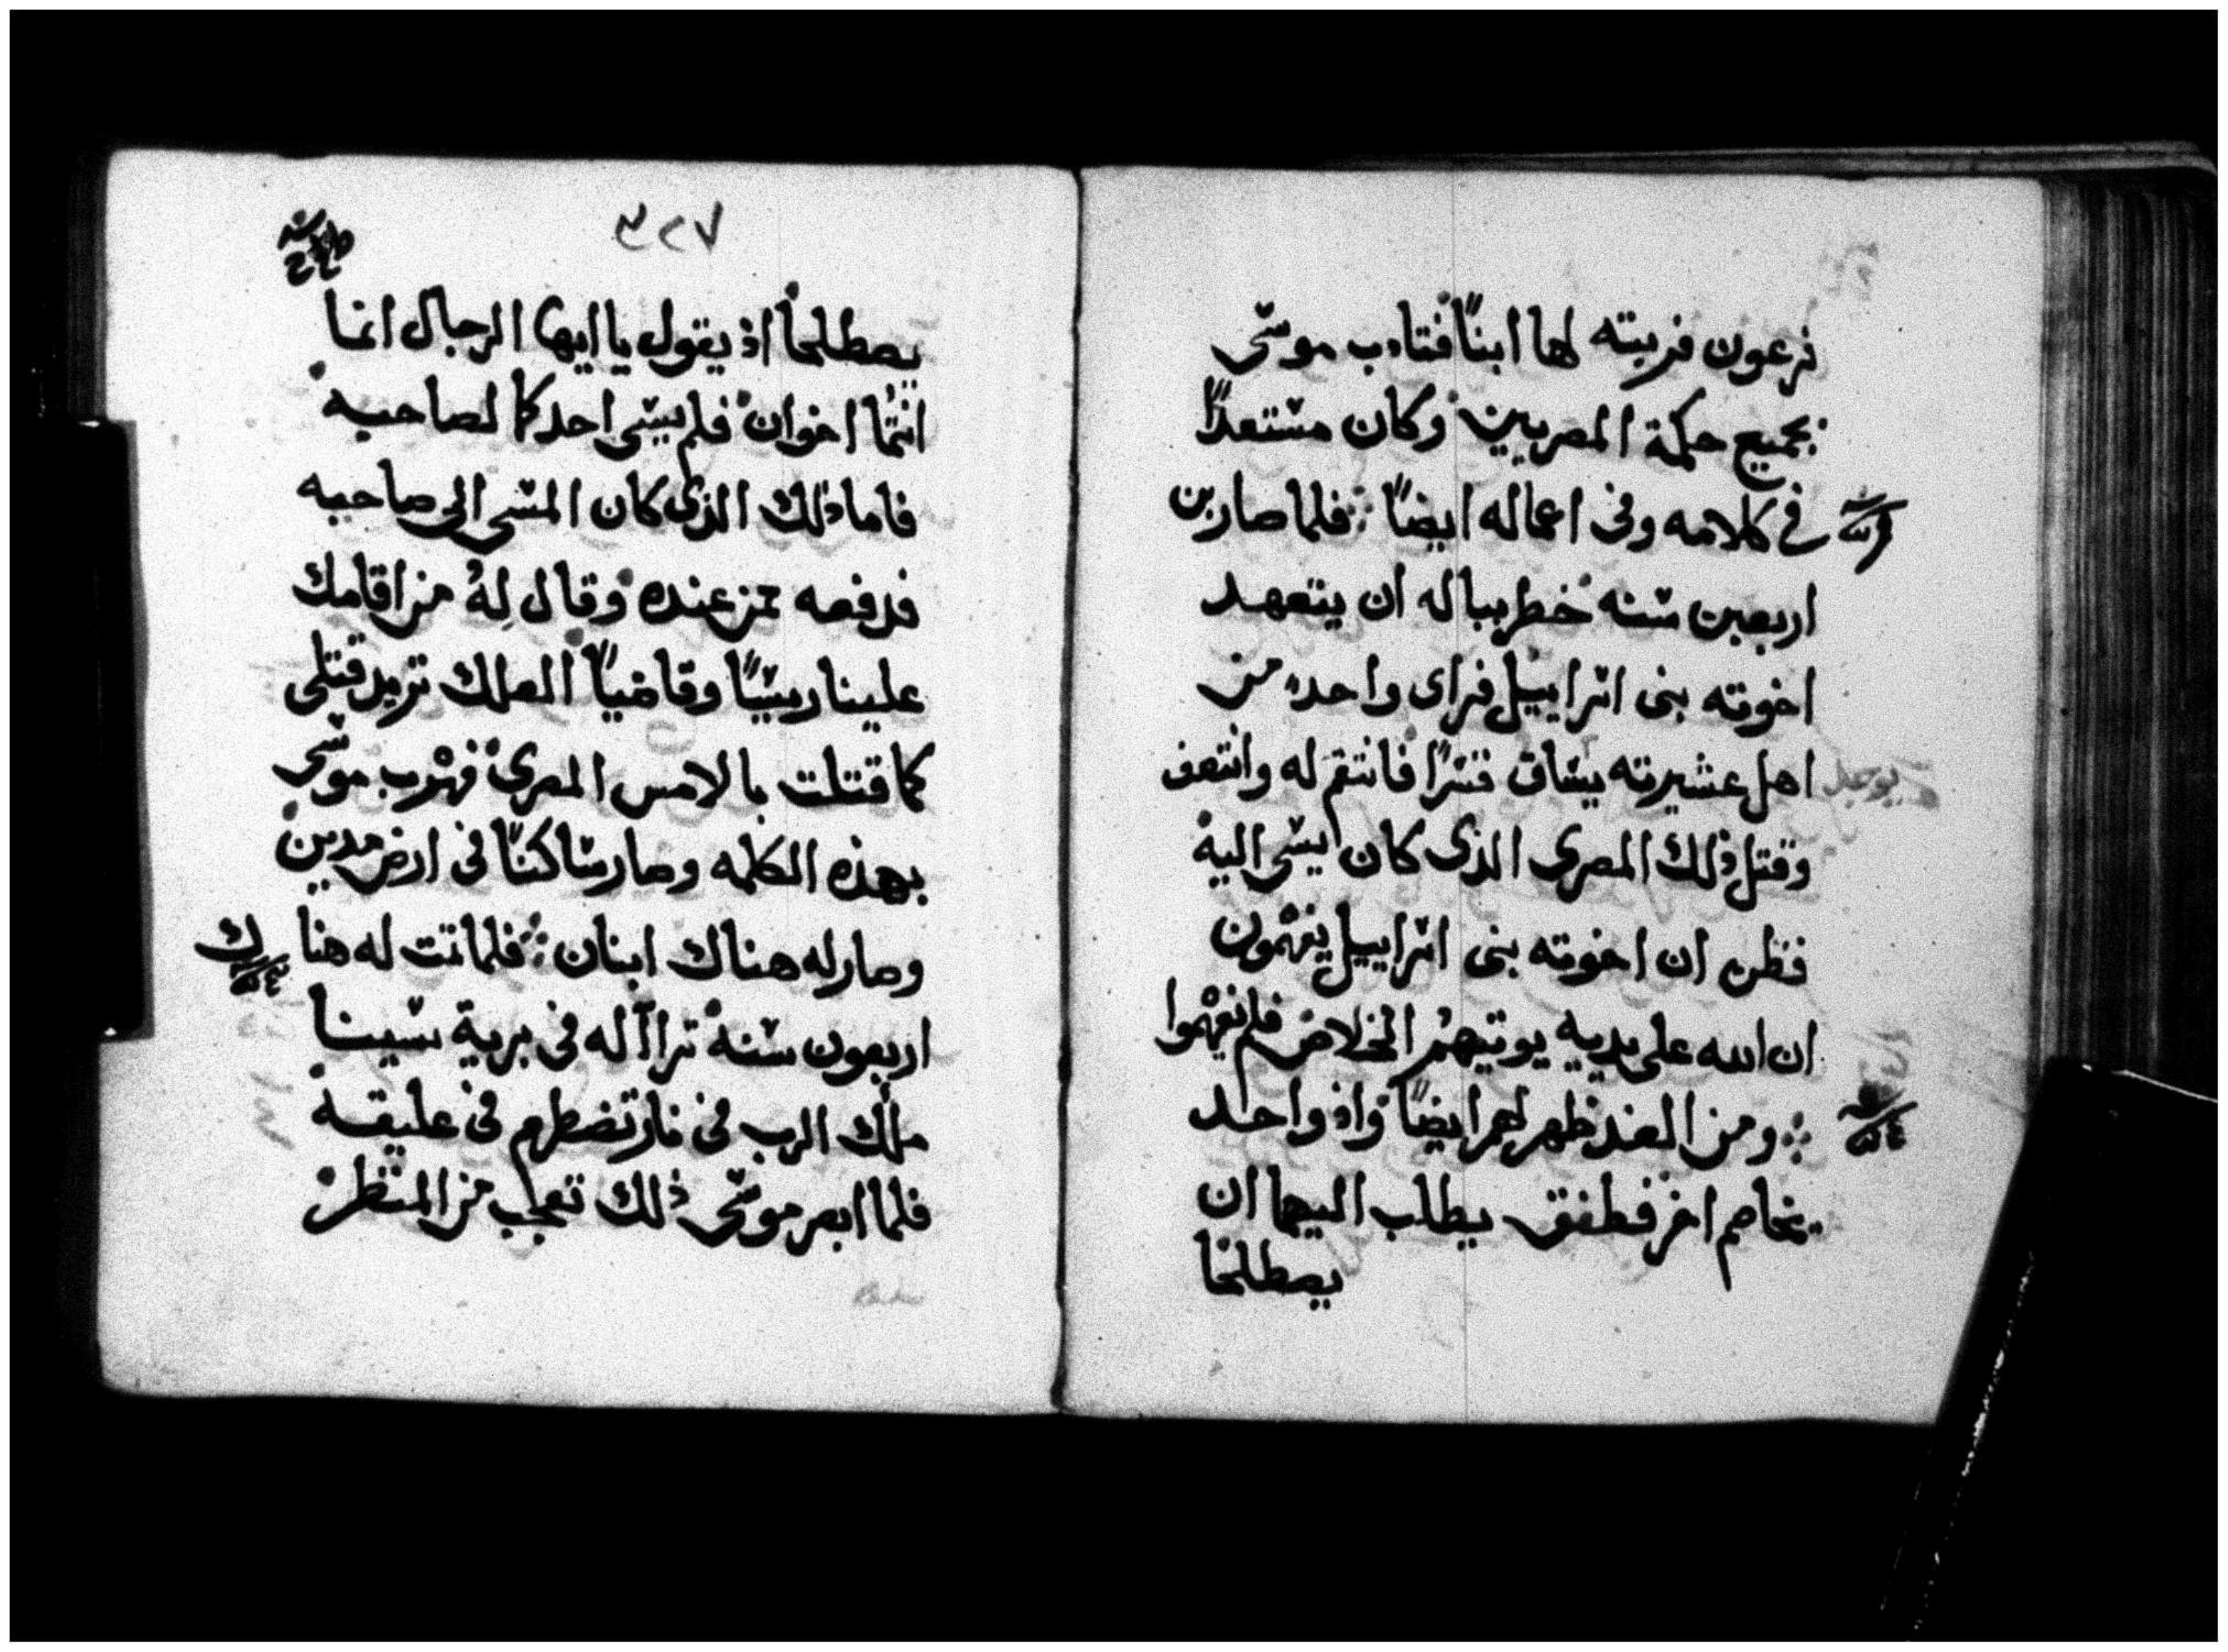 فرعون فربته لها ابنًا فتادب موسى
بجميع حكمة المصريين وكان مستعدًا
في كلامه وفى اعماله ايضًا فلما صار بن
اربعين سنه خطر بباله ان يتعهد
اخوته بنى اسراييل فراى واحده من
اهل عشيرته يساق قسرًا فانتقم له وانتصف
وقتل ذلك المصرى الذى كان يسى اليه
فظن ان اخوته بنى اسراييل يفهمون
ان الله على يديه يوتيهم الخلاص فلم يفهموا
ومن الغد ظهر لهم ايضًا واذ واحد
يخاصم اخر فطفق يطلب اليهما ان
يصطلحا
٣٢٧
يصطلحا اذ يقول يا ايها الرجال انما
انتما اخوان فلم يسى احدكما لصاحبه
فاما ذلك الذى كان المسى الى صاحبه
فدفعه من عنده وقال له من اقامك
علينا ريسًا وقاضيًا العلك تريد قتلى
كما قتلت بالامس المصرى فهرب موسى
بهذه الكلمه وصار ساكنًا فى ارض مدين
وصار له هناك ابنان فلما تمت له هنا
ك
اربعون سنة تراآ له فى برية سينا
ملاك الرب فى نار تضطرم فى عليقة
فلما ابصر موسى ذلك تعجب من المنظر